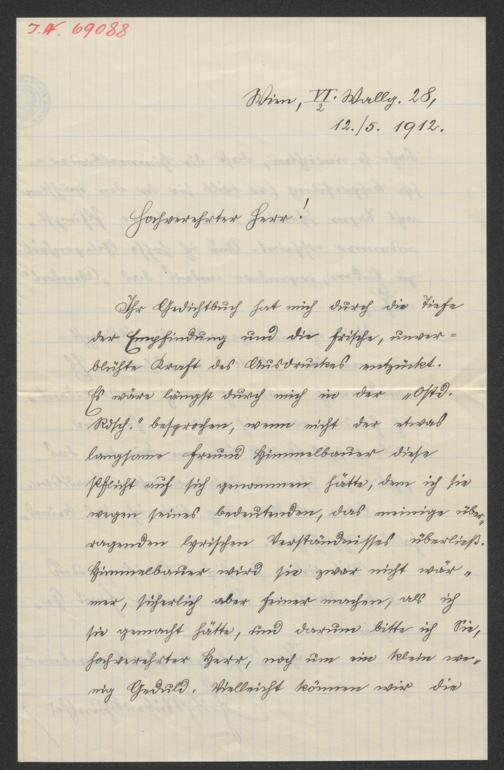 J.N. 69088
Wien, VI./2 Wallg. 28,
12./5. 1912.
Hochverehrter Herr!
Ihr Gedichtbuch hat mich durch die Tiefe
der Empfindung und die frische, unver=
blühte Kraft des Ausdruckes entzückt.
Es wäre längst durch mich in der „Ostd.
Rdsch." besprochen, wenn nicht der etwas
langsame Freund Himmelbauer diese
Pflicht auf sich genommen hätte, dem ich sie
wegen seines bedeutenden, das meinige über=
ragenden lyrischen Verständnisses überließ.
Himmelbauer wird sie zwar nicht wär=
mer, sicherlich aber feiner machen, als ich
sie gemacht hätte, und darum bitte ich Sie,
hochverehrter Herr, noch um ein klein we=
nig Geduld. Vielleicht können wir die